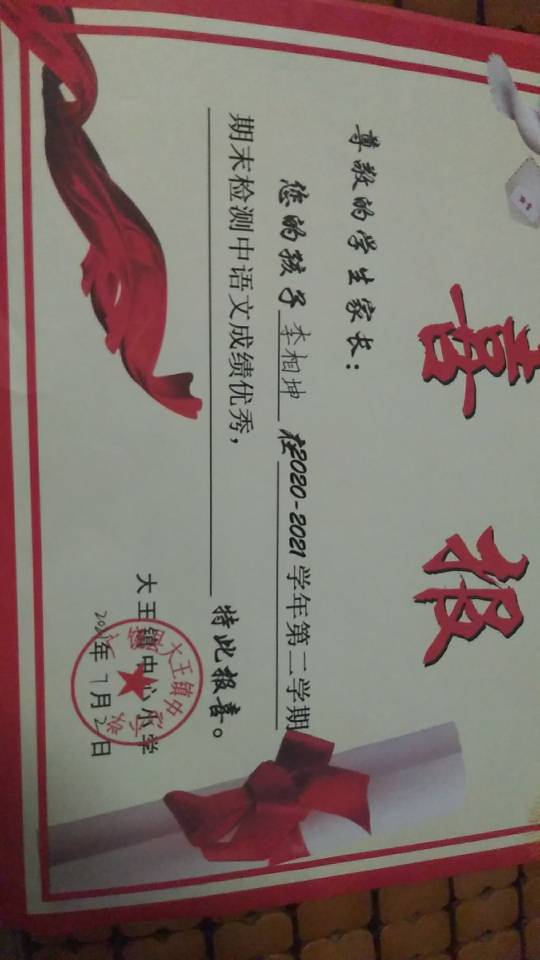 喜报
尊敬的学生家长：
您的孩子李相坤在2020-2021学年第二学期
期末检测中语文成绩优秀，
特此报喜。
大王镇中心小学
2021年7月2日